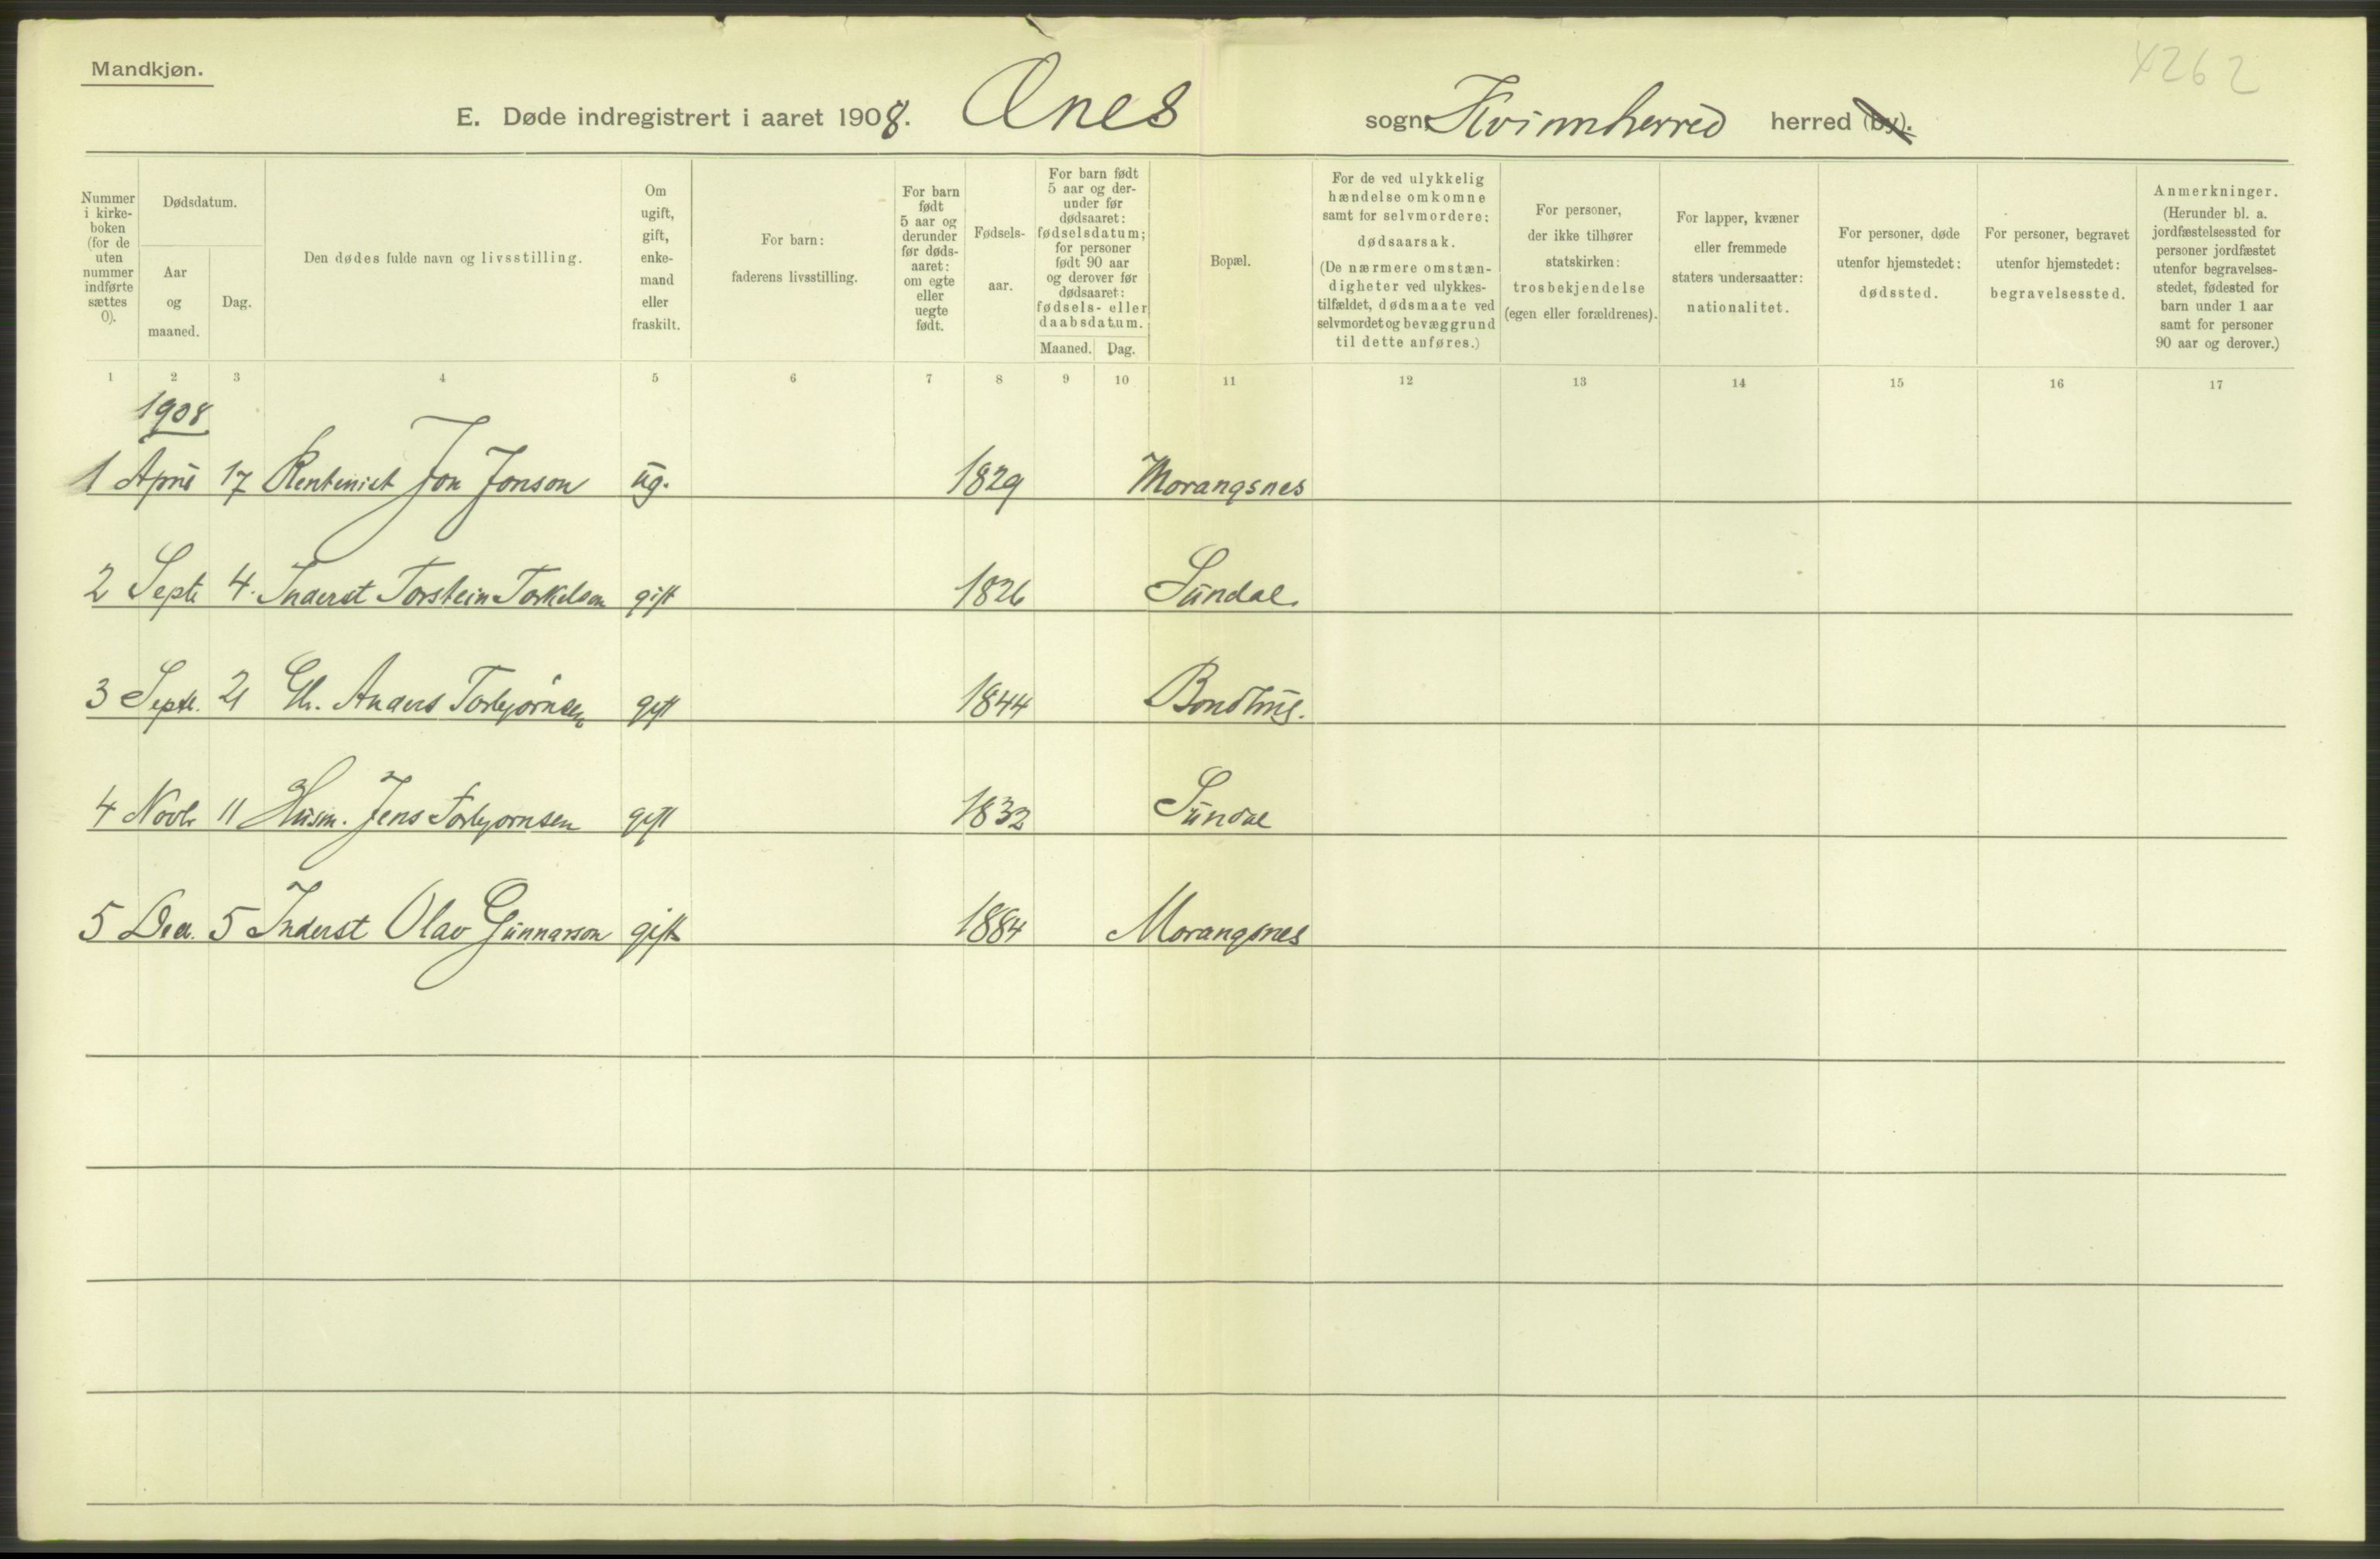 Mandkjøn.
4262
E. Døde indregistrert i aaret 1908. Ænes sogn, Kvinnherred herred (by).
Nummer i kirke-boken (for de uten nummer indførte sættes 0).
Dødsdatum.
Aar og maaned.
Dag.
Den dødes fulde navn og livsstilling.
Om ugift, gift, enke-mand eller fraskilt.
For barn: faderens livsstilling.
For barn født 5 aar og derunder før døds-aaret: om egte eller uegte født.
Fødsels-aar.
For barn født 5 aar og der-under før dødsaaret: fødselsdatum; for personer født 90 aar og derover før dødsaaret: fødsels- eller daabsdatum.
Maaned. Dag.
Bopæl.
For de ved ulykkelig hændelse omkomne samt for selvmordere: dødsaarsak. (De nærmere omstæn-digheter ved ulykkes-tilfældet, dødsmaate ved selvmordet og bevæggrund til dette anføres.)
For personer, der ikke tilhører statskirken: trosbekjendelse (egen eller forældrenes).
For lapper, kvæner eller fremmede staters undersaatter: nationalitet.
For personer, døde utenfor hjemstedet: dødssted.
For personer, begravet utenfor hjemstedet: begravelsessted.
Anmerkninger. (Herunder bl. a. jordfæstelsessted for personer jordfæstet utenfor begravelses-stedet, fødested for barn under 1 aar samt for personer 90 aar og derover.)
1 2 3 4 5 6 7 8 9 10 11 12 13 14 15 16 17
1908
1 April 17 Rentenist Jon Jonson ug. 1829 Morangsnes
2 Septr 4. Inderst Torstein Torkelson gift 1826 Sundal.
3 Septr. 21 Gb. Anders Torbjørnsen gift 1844 Bondhus.
4 Novbr 11 Husm. Jens Torbjørnsen gift 1832 Sundal
5 Decr. 5 Inderst Olav Gunnarson gift 1884 Morangsnes